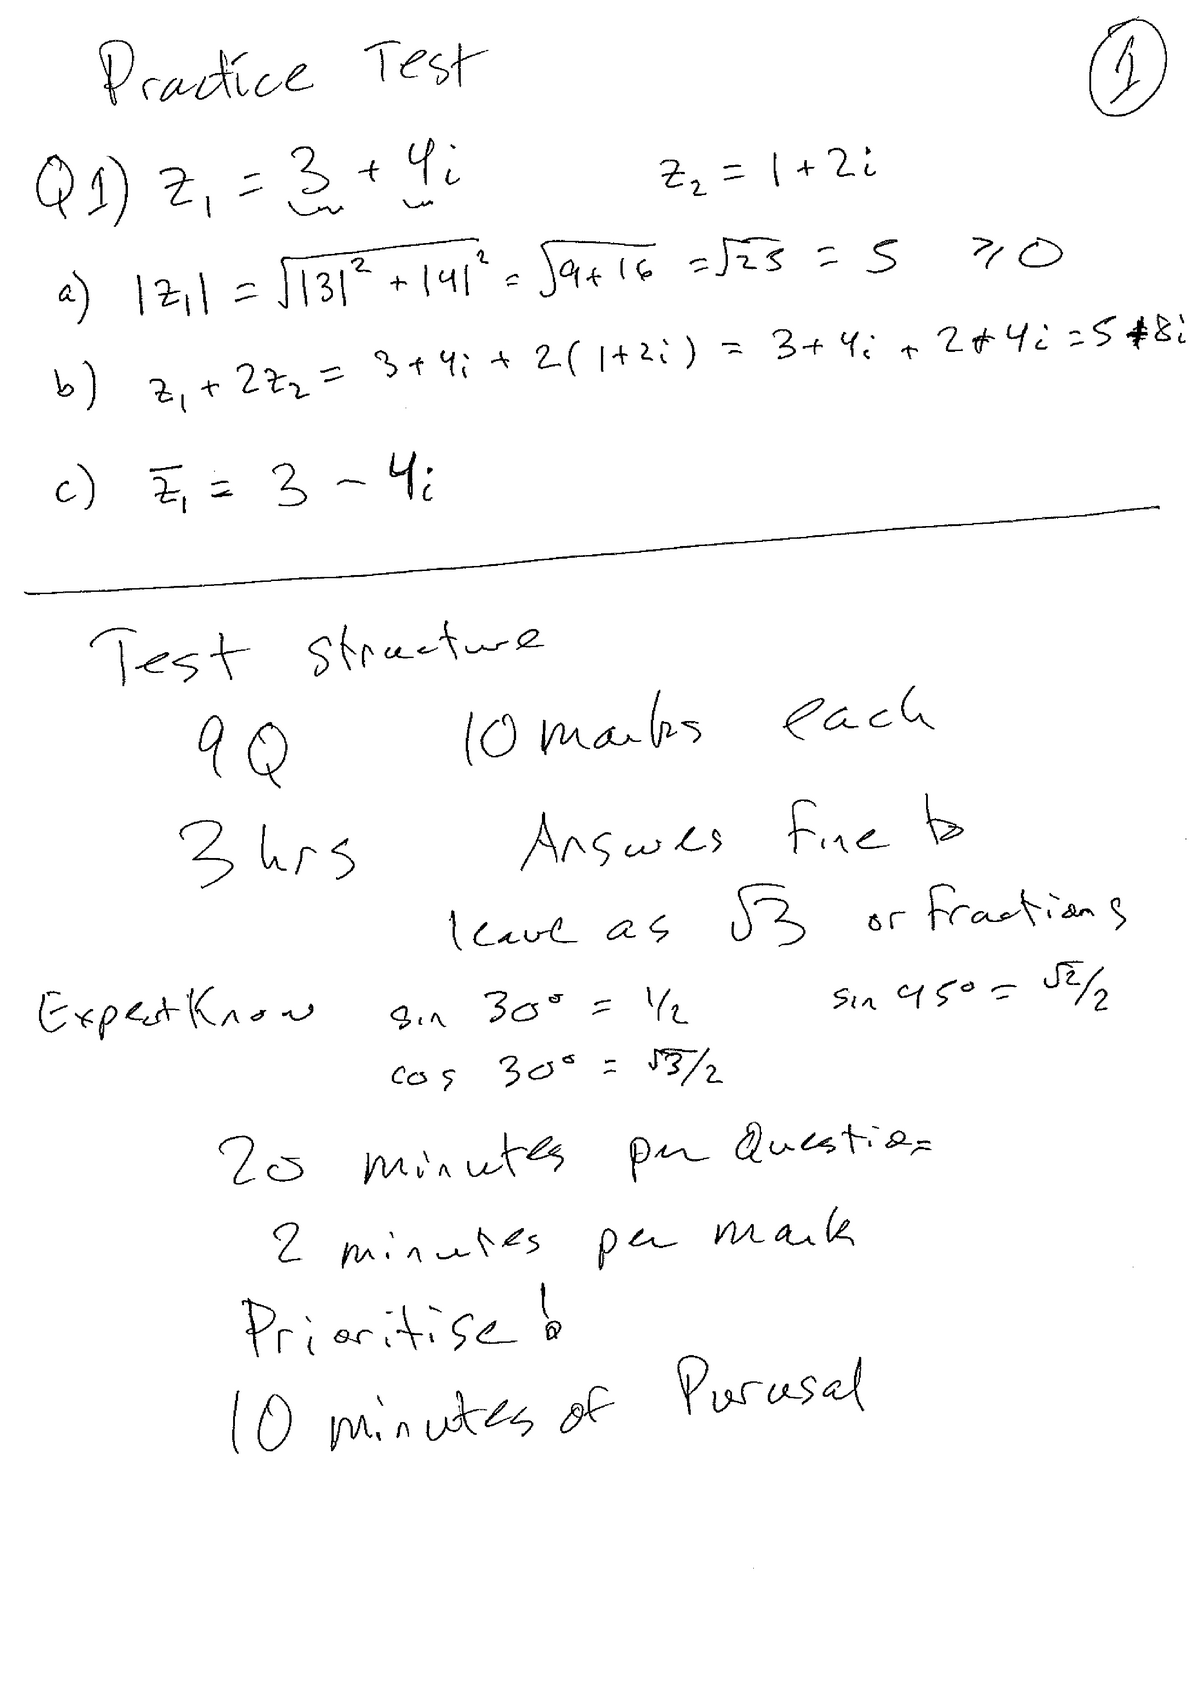 Practice Test ①
Q1) z₁ = 3 + 4i z₂ = 1 + 2i
a) |z₁| = √(|3|² + |4|²) = √(9+16) = √25 = 5 ⩾ 0
b) z₁ + 2z₂ = 3 + 4i + 2(1+2i) = 3 + 4i + 2 + 4i = 5 + 8i
c) z̄₁ = 3 - 4i
Test structure
9 Q 10 marks each
3 hrs Answers fine to
leave as √3 or fractions
Expect Know sin 30° = 1/2 sin 45° = √2/2
cos 30° = √3/2
20 minutes per Question
2 minutes per mark
Prioritise !
10 minutes of Purusal